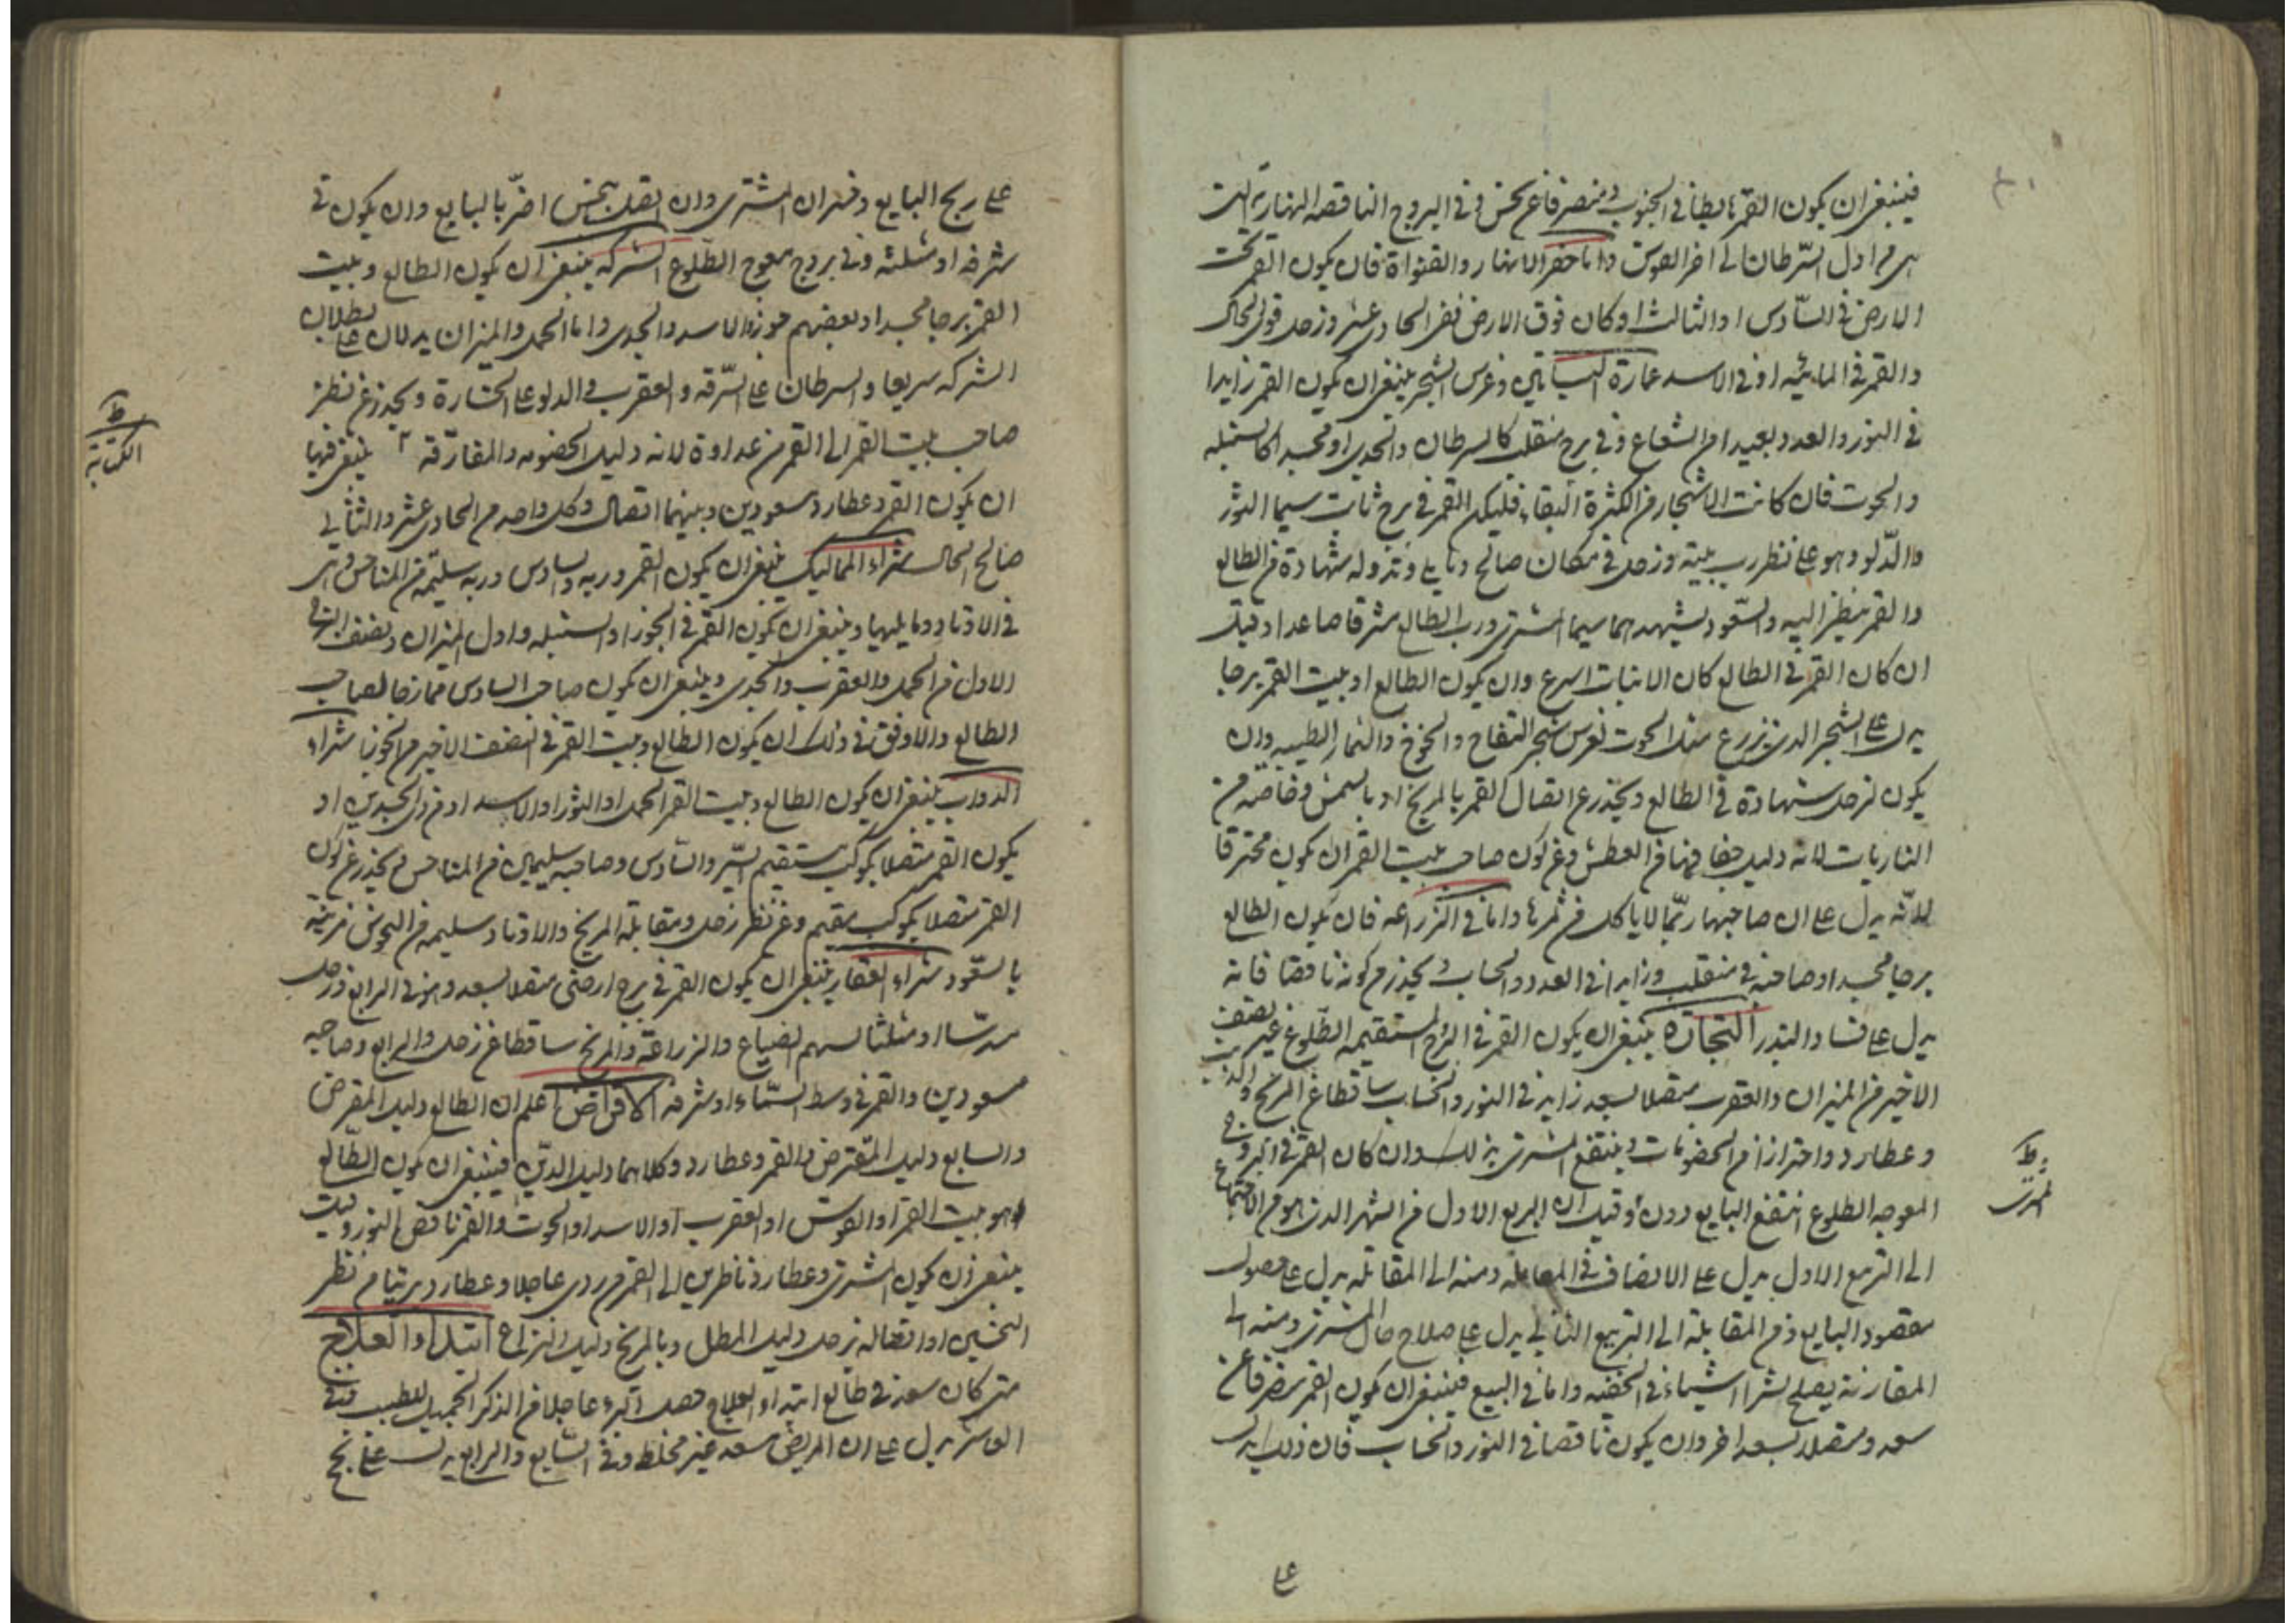 فينبغي ان يكون القمر هابطا في الجنوب ومنصرفا عن نحس وفي البروج الناقصة النهار التي
هي من اول السرطان الى اخر القوس واما حفر الانهار والقنواة فان يكون القمر تحت
الارض في السادس او الثالث او كان فوق الارض ففي الحادي عشر وزحل قوي الحال
والقمر في المائيه او في الاسد عمارة البساتين وغرس الشجر ينبغي ان يكون القمر زايدا
في النور والعدد بعيدا من الشعاع وفي برج منقلب كالسرطان والجدي او مجسد كالسنبله
والحوت فان كانت الاشجار من الكثيرة البقاء فليكن القمر في برج ثابت سيما الثور
والدلو وهو على نظر رب بيته وزحل في مكان صالح وله شهادة في الطالع
والقمر ينظر اليه والسعود يشهدهما سيما المشتري ورب الطالع شرقا صاعدا وقيل
ان كان القمر في الطالع كان الانبات اسرع وان يكون الطالع او بيت القمر برجا
يدل على الشجر الذي يزرع مثل الحوت لغرس شجر التفاح والخوخ والثمار الطيبه وان
يكون لزحل شهادة في الطالع ويحذر عن اتصال القمر بالمريخ او بالشمس وخاصة من
الناريات لانه دليل جفافها من العطش وعن كون صاحب بيت القمر ان يكون محترقا
لانه يدل على ان صاحبها ربما لا ياكل من ثمرها واما في الزراعه فان يكون الطالع
برجا مجسدا وصاحبه في منقلب وزايدا في العدد والحساب ويحذر من كونه ناقصا فانه
يدل على فساد البذر التجارة ينبغي ان يكون القمر في البرج المستقيمه الطلوع غير نصف
الاخير من الميزان والعقرب متصلا بسعد زايد في النور والحساب ساقطا عن المريخ والذنب
وعطارد واحترازا من الخصومات وينتفع المشتري بذلك وان كان القمر في البروج
المعوجه الطلوع انتفع البايع دونه وقيل ان الربع الاول من الشهر الذي هو من الاجتماع
الى التربيع الاول يدل على الانصاف في المعامله ومنه الى المقابله يدل على حصول
مقصود البايع ومن المقابلة الى التربيع الثاني يدل على صلاح حال المشتري ومنه الى
المقارنة يصلح لشرا اشياء في الخفيه واما في البيع فينبغي ان يكون القمر منصرفا عن
سعد ومتصلا بسعد اخر وان يكون ناقصا في النور والحساب فان ذلك يدل
ط
المشتري
على
على ربح البايع وخسران المشتري وان اتصل بنحس اضر بالبايع وان يكون في
شرفه او مثلثه وفي بروج معوج الطلوع الشركه ينبغي ان يكون الطالع وبيت
القمر برجا مجسدا وبعضهم جوزوا الاسد والجدي واما الحمل والميزان يدلان على بطلان
الشركه سريعا والسرطان على السرقه والعقرب والدلو على الخسارة ويحذر عن نظر
صاحب بيت القمر الى القمر من عداوة لانه دليل الخصومه والمفارقه ينبغي فيها
ان يكون القمر وعطارد مسعودين وبينهما اتصال وكل واحد من الحادي عشر والثاني
صالح الحال شراء المماليك ينبغي ان يكون القمر وربه والسادس وربه سليمة من المناحس وهي
في الاوتاد وما يليها وينبغي ان يكون القمر في الجوزا والسنبله واول الميزان ونصف
الاول من الحمل والعقرب والجدي وينبغي ان يكون صاحب السادس ممازجا لصاحب
الطالع والاوفق في ذلك ان يكون الطالع وبيت القمر في النصف الاخير من الجوزا شراء
الدواب ينبغي ان يكون الطالع وبيت القمر الحمل او الثور او الاسد او من ذي الجسدين او
يكون القمر متصلا بكوكب مستقيم السير والسادس وصاحبه سليمين من المناحس ويحذر عن كون
القمر متصلا بكوكب مقيم وعن نظر زحل ومقابلة المريخ والاوتاد سليمه من النحوس مزينة
بالسعود شراء العقار ينبغي ان يكون القمر في برج ارضي متصلا بسعد وهو في الرابع وزحل
مسدسا او مثلثا لسهم الضياع والزراعة والمريخ ساقطا عن زحل والرابع وصاحبه
مسعودين والقمر في وسط السماء او شرفه الاقراض اعلم ان الطالع دليل المقرض
والسابع دليل المقترض والقمر وعطارد وكلاهما دليل الدين فينبغي ان يكون الطالع
وهو بيت القمر او القوس او العقرب او الاسد او الحوت والقمر ناقص النور وقيل
ينبغي ان يكون المشتري وعطارد ناظرين الى القمر عاجلا وعطارد نظر
النحسين او اتصاله بزحل دليل المطل وبالمريخ دليل النزاع ابتداء العلاج
متى كان سعد في طالع ابتداء العلاج حصل البرء عاجلا من الذكر الجميل للطبيب وفي
العاشر يدل على ان المريض سعد غير مخلط وفي السابع والرابع يدل على نجح
ط
الكتابة